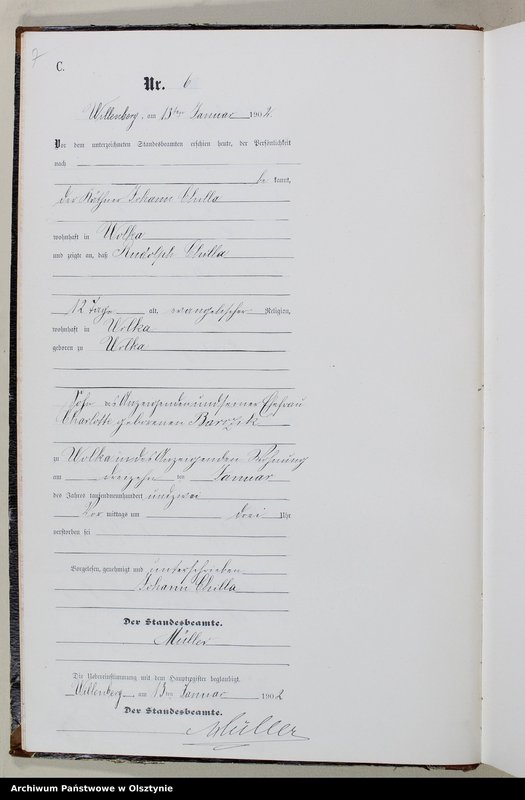 7
C.
Nr. 6
Willenberg, am 13ten Januar 1902.
Vor dem unterzeichneten Standesbeamten erschien heute, der Persönlichkeit
nach
be kannt,
der Käthner Johann Chilla
wohnhaft in Wolka
und zeigte an, daß Rudolph Chilla
12 Tage alt, evangelischer Religion,
wohnhaft in Wolka
geboren zu Wolka
Sohn des Anzeigenden und seiner Ehefrau
Charlotte geborenen Barczik
zu Wolka in des Anzeigenden Wohnung
am dreizehn ten Januar
des Jahres tausendneunhundert und zwei
Vor mittags um drei Uhr
verstorben sei
Vorgelesen, genehmigt und unterschrieben
Johann Chilla
Der Standesbeamte.
Müller
Die Uebereinstimmung mit dem Hauptregister beglaubigt.
Willenberg, am 13ten Januar 1902
Der Standesbeamte.
Müller
Archiwum Państwowe w Olsztynie